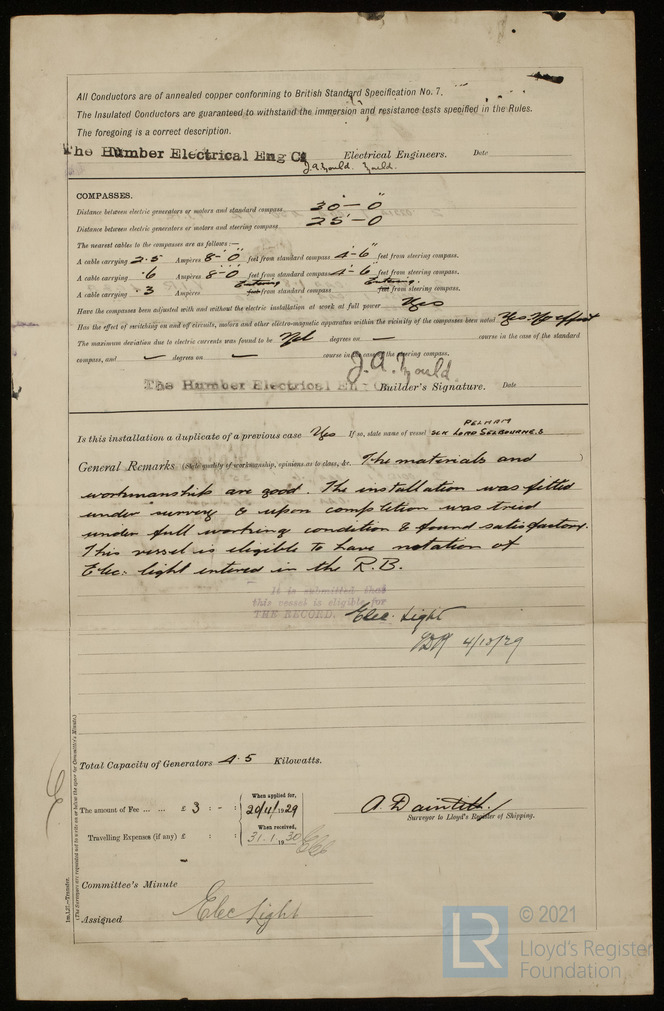 All Conductors are of annealed copper conforming to British Standard Specification No. 7.
The Insulated Conductors are guaranteed to withstand the immersion and resistance tests specified in the Rules.
The foregoing is a correct description.
The Humber Electrical Eng Co Electrical Engineers. Date
J.A. Gould.
COMPASSES.
Distance between electric generators or motors and standard compass 30'-0"
Distance between electric generators or motors and steering compass 25'-0
The nearest cables to the compasses are as follows:—
A cable carrying 2.5 Ampères 8'-0" feet from standard compass 4'-6" feet from steering compass.
A cable carrying .6 Ampères 8-0 feet from standard compass 4'-6" feet from steering compass.
A cable carrying .3 Ampères Entering feet from standard compass Entering. feet from steering compass.
Have the compasses been adjusted with and without the electric installation at work at full power Yes
Has the effect of switching on and off circuits, motors and other electro-magnetic apparatus within the vicinity of the compasses been noted Yes. No effect
The maximum deviation due to electric currents was found to be Nil degrees on — course in the case of the standard
compass, and — degrees on — course in the case of the steering compass.
J.A. Gould.
The Humber Electrical En Co Builder's Signature. Date
PELHAM
Is this installation a duplicate of a previous case Yes If so, state name of vessel LORD SELBOURNE.S
General Remarks (State quality of workmanship, opinions as to class, &c. The materials and )
workmanship are good. The installation was fitted
under survey & upon completion was tried
under full working condition & found satisfactory.
This vessel is eligible to have notation of
Elec. light entered in the R.B.
It is submitted that
this vessel is eligible for
THE RECORD. Elec. Light
4/12/29
Total Capacity of Generators 4.5 Kilowatts.
The amount of Fee ... ... £ 3 : - : When applied for, 20/11/1929
Travelling Expenses (if any) £ : : When received, 31.1.1930
A. Daintith.
Surveyor to Lloyd's Register of Shipping.
Committee's Minute
Assigned Elec Light
1m.1.27.—Transfer.
(The Surveyors are requested not to write on or below the space for Committee's Minute.)
LR © 2021
Lloyd's Register
Foundation